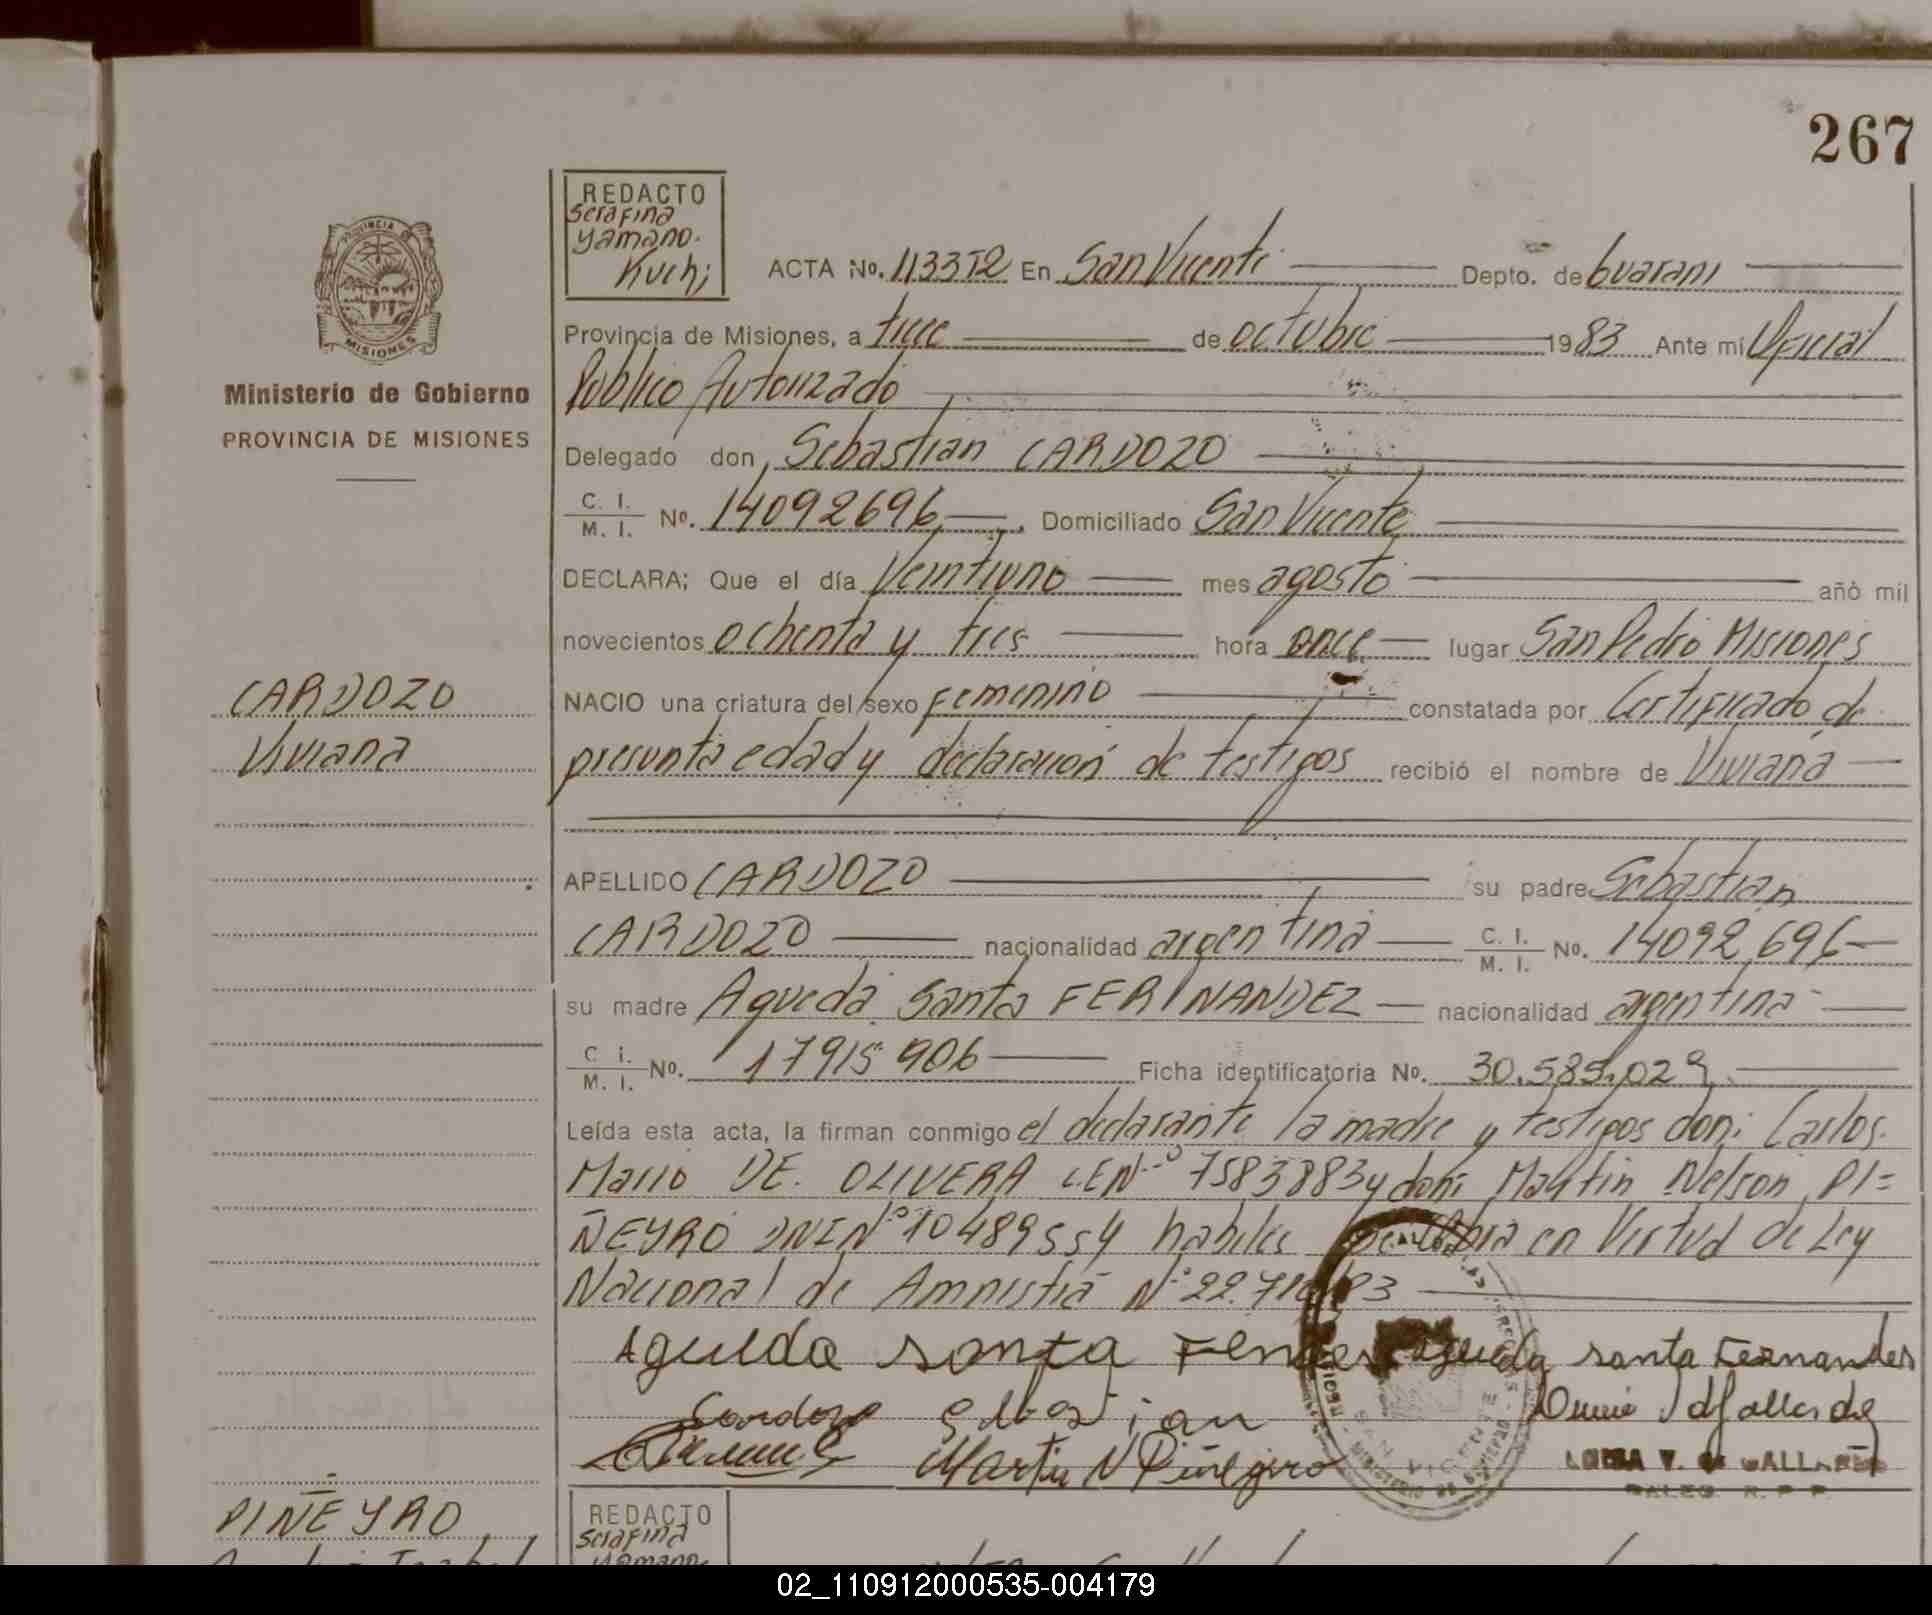 267
REDACTO
Serafina
Yamano.
Kuchi
ACTA No. 113352 En San Vicente Depto. de Guarani
PROVINCIA DE
MISIONES
Provincia de Misiones, a trece de octubre 1983 Ante mí Oficial
Publico Autorizado
Ministerio de Gobierno
PROVINCIA DE MISIONES
Delegado don, Sebastian CARDOZO
C. I. / M. I. No. 14092696, Domiciliado San Vicente
DECLARA; Que el día Veintiuno mes agosto añó mil
novecientos ochenta y tres hora once lugar San Pedro Misiones
CARDOZO
Viviana
NACIO una criatura del sexo Femenino constatada por Certificado de
presunta edad y declaración de testigos recibió el nombre de Viviana
APELLIDO CARDOZO su padre Sebastian
CARDOZO nacionalidad argentina C. I. / M. I. No. 14092,696
su madre Agueda Santa FERNANDEZ nacionalidad argentina
C i. / M. I. No. 17915906 Ficha identificatoria No. 30.585.029
Leída esta acta, la firman conmigo el declarante la madre y testigos don: Carlos
Mario DE. OLIVERA L.E.Nº 7583883 y don: Martin Nelson PI=
ÑEYRO DNI Nº 10489554 habiles en Virtud de Ley
Nacional de Amnistia Nº 22.
Agueda santa Agueda santa Fernandes
Cardozo Sebastian
Martin N Piñeyro
SAN VICENTE
LUISA V. de GALLARDO
PIÑEYRO
REDACTO
Serafina
Yamano.
02_110912000535-004179